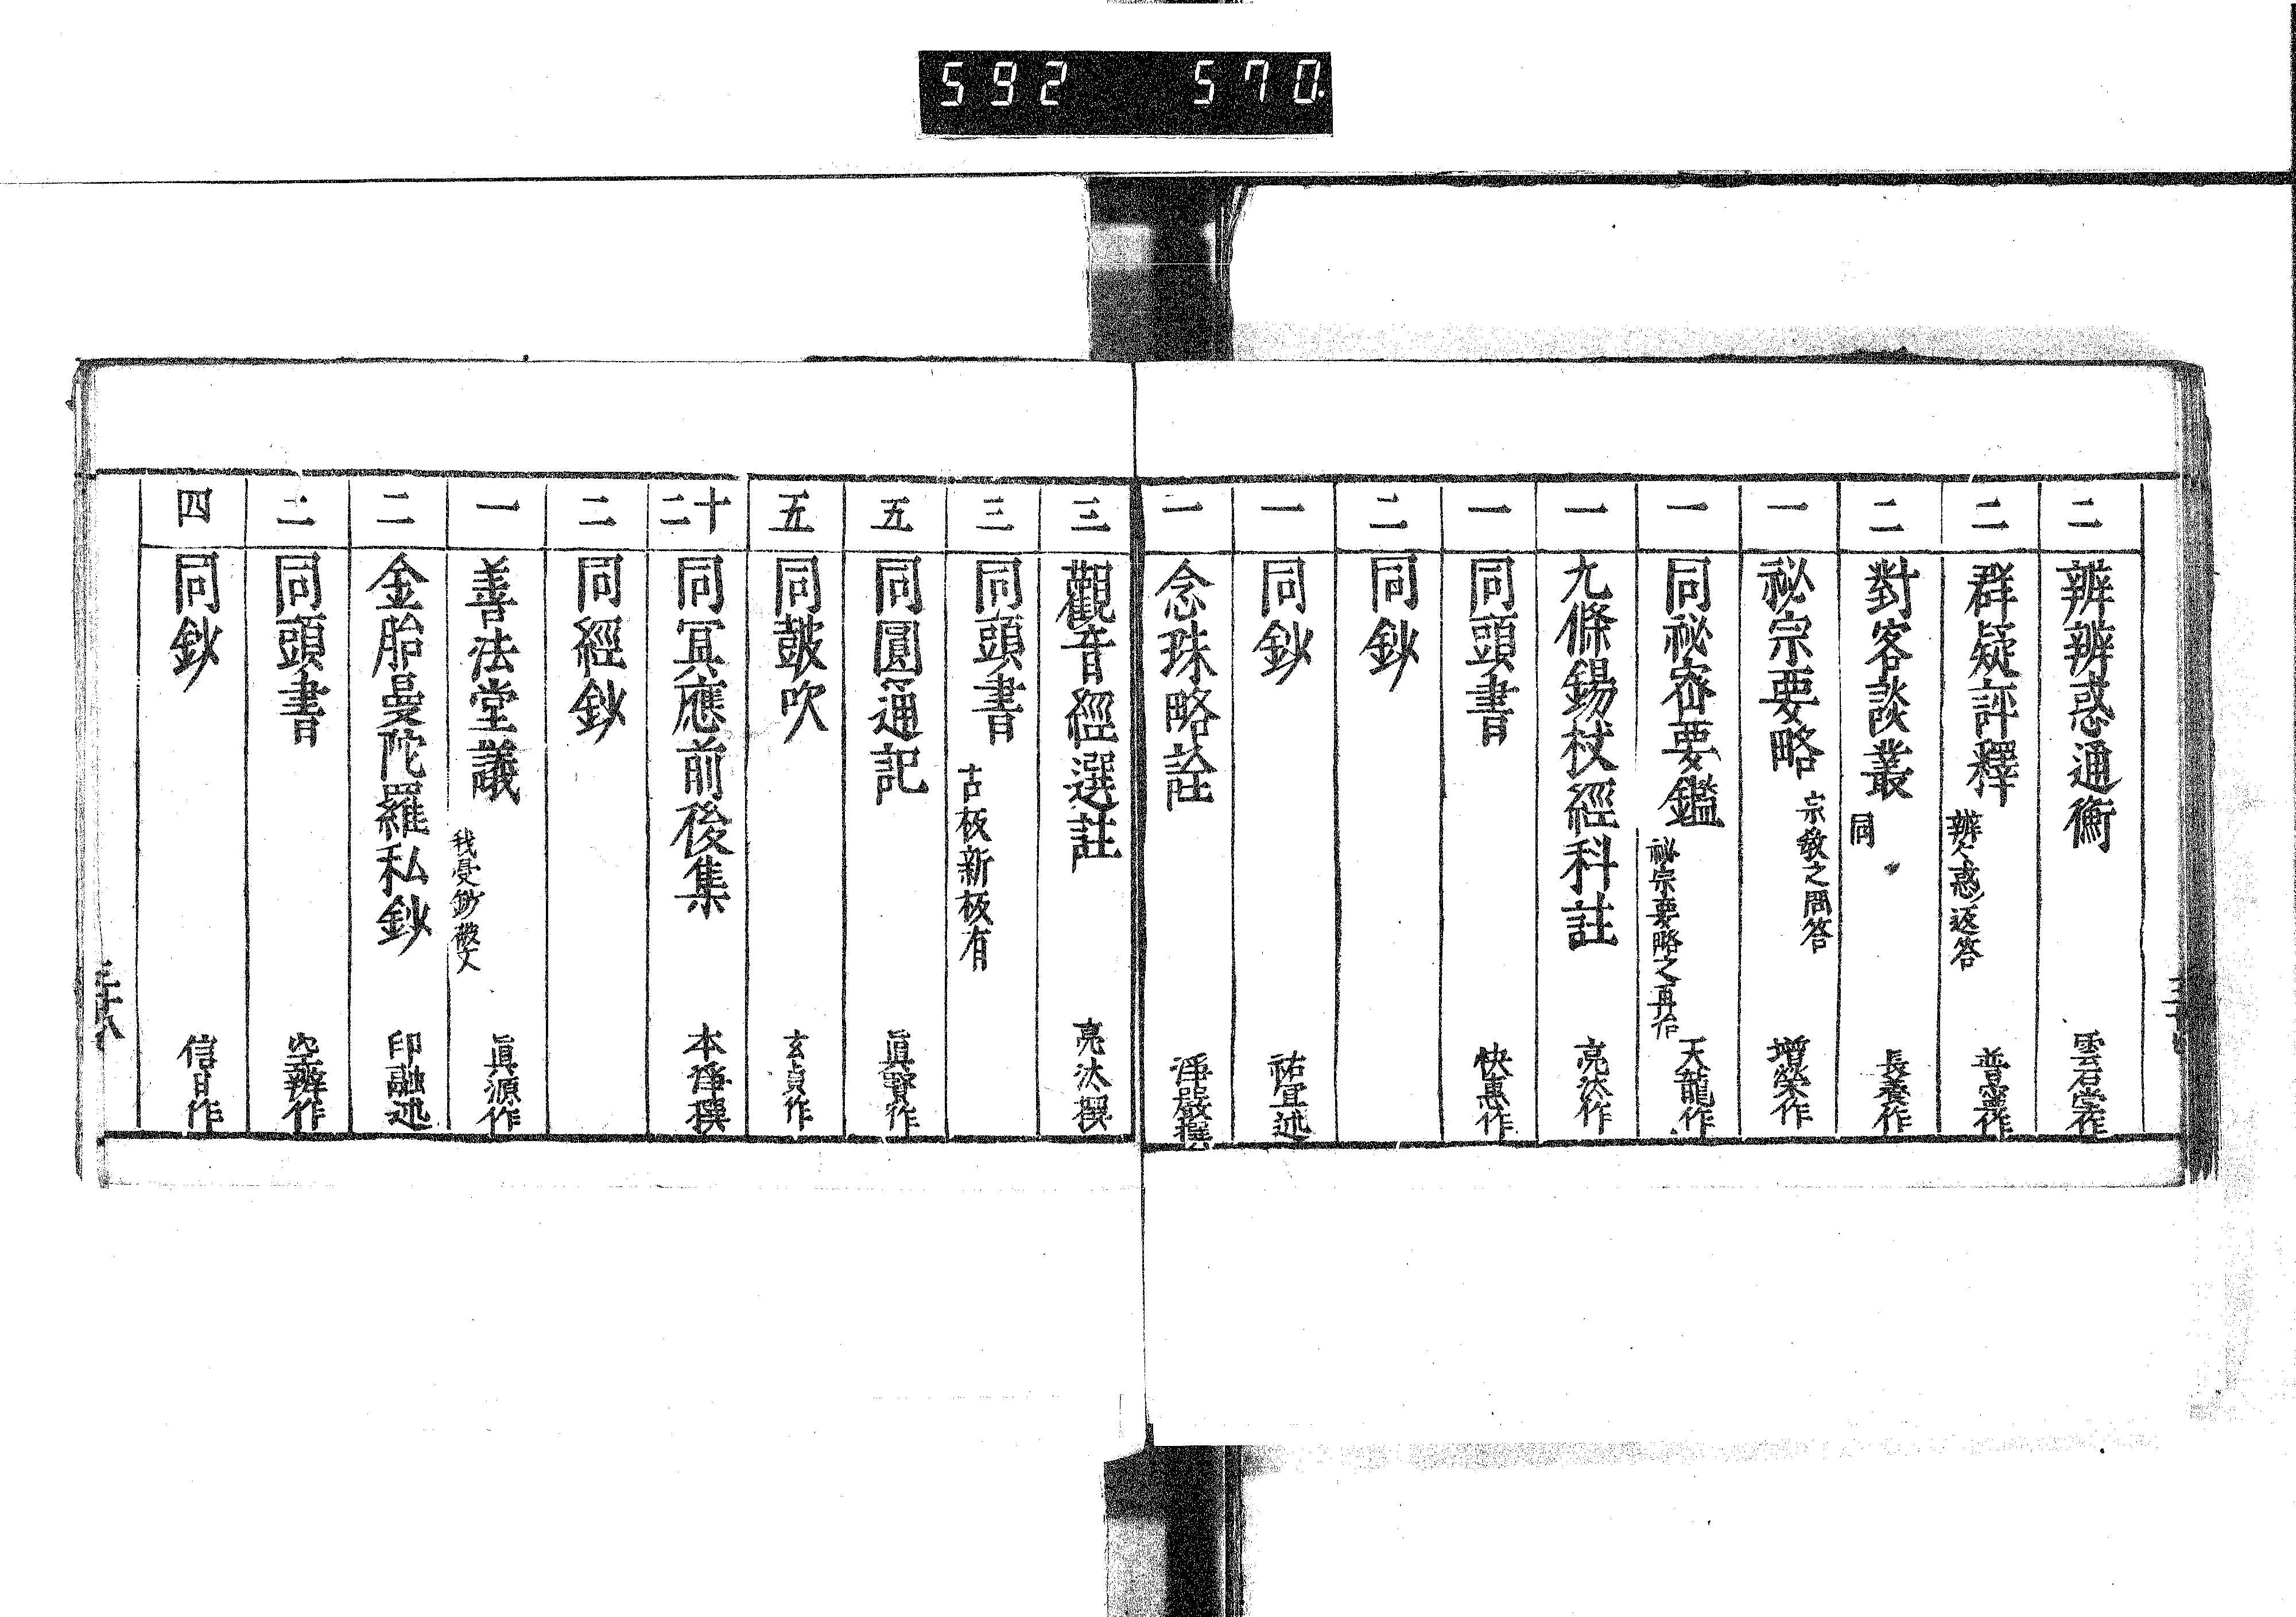 592 570.
二 辨辨惑通衡 雲石堂作
二 群疑評釋 辨々惑ノ返答 普寧作
二 對客談叢 同 長養作
一 祕宗要略 宗敎之問答 增榮作
一 同祕密要鑑 祕宗要略之再治 天龍作
一 九條錫杖經科註 亮汰作
一 同頭書 快惠作
二 同鈔
一 同鈔 祐宜述
一 念珠略詮 淨嚴撰
三 觀音經選註 亮汰撰
三 同頭書 古板新板有
五 同圓通記 眞賢作
五 同皷吹 玄貞作
十二 同冥應前後集 本淨撰
二 同經鈔
一 善法堂議 我慢鈔破文 眞源作
二 金胎曼陀羅私鈔 印融述
二 同頭書 空辨作
四 同鈔 信日作
三十八